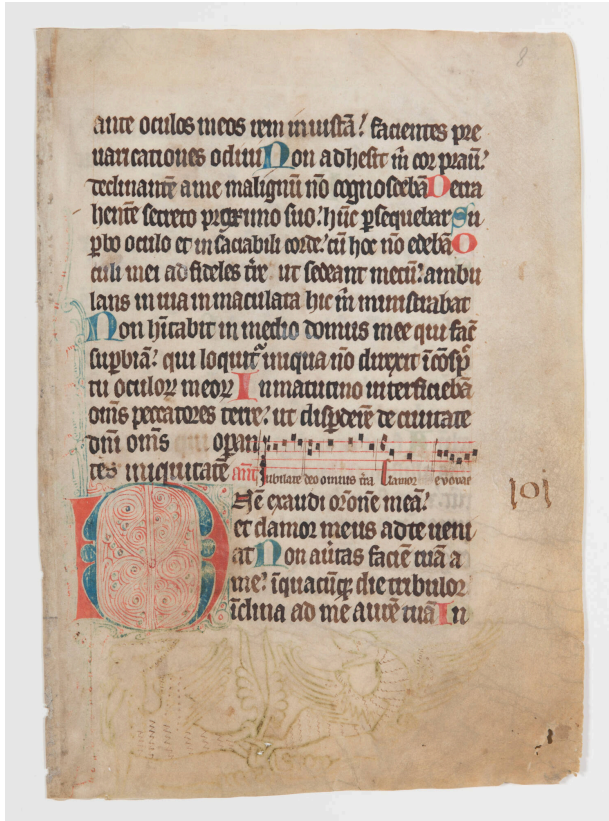 8
ante oculos meos rem iniustā: facientes pre
uaricationes odiui Non adhesit m̄ cor prauū:
declinantē a me malignū nō cognoscebā Detra
hentē secreto proximo suo: hūc psequebar Su
pbo oculo et insaciabili corde: cū hoc nō edebā O
culi mei ad fideles tr̄e ut sedeant mecū: ambu
lans in uia inmaculata hic m̄ ministrabat
Non hītabit in medio domus mee qui facit
supbiā: qui loquit̄ iniqua nō direxit ī cōspō
tu oculoꝝ meoꝝ In matutino interficiebā
om̄s peccatores terre: ut dispderē de ciuitate
dn̄i om̄s opan
tes iniquitatē ant̄ Iubilate deo omnis t̄ra Clamor evovae
Dn̄e exaudi or̄one meā:
et clamor meus ad te ueni
at Non au̅tas faciē tuā a
me: ī quacūqꝫ die tribulor
īclina ad me aurē tuā In
101